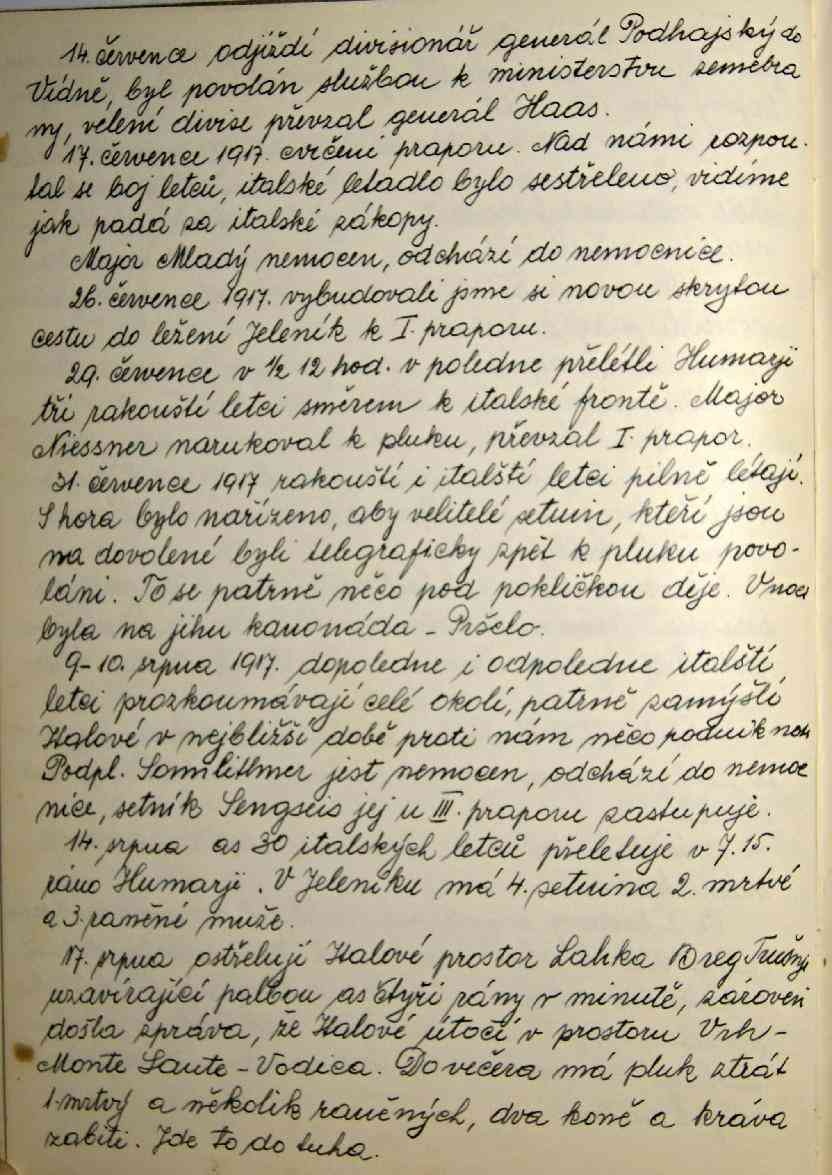 14. července odjíždí divisionář generál Podhajský do
Vídně, byl povolán službou k ministerstvu zeměbra
ny, velení divise převzal generál Haas.
17. července 1917. cvičení praporu. Nad námi rozpou-
tal se boj letců, italské letadlo bylo sestřeleno, vidíme
jak padá za italské zákopy.
Major Mladý nemocen, odchází do nemocnice.
26. července 1917. vybudovali jsme si novou skrytou
cestu do ležení Jeleník k I. praporu.
29. července v 1/2 12 hod. v poledne přelétli Humarji
tři rakouští letci směrem k italské frontě. Major
Niessner narukoval k pluku, převzal I. prapor.
31. července 1917 rakouští i italští letci pilně létají.
Shora bylo nařízeno, aby velitelé setnin, kteří jsou
na dovolené byli telegraficky zpět k pluku povo-
láni. To se patrně něco pod pokličkou děje. V noci
byla na jihu kanonáda - Pršelo.
9-10. srpna 1917. dopoledne i odpoledne italští
letci prozkoumávají celé okolí, patrně zamýšlí
Italové v nejbližší době proti nám něco podniknout
Podpl. jest nemocen, odchází do nemoc
nice, setník Sengseis jej u III. praporu zastupuje.
14. srpna as 30 italských letců přeletuje v 7.15.
ráno Humarji. V Jeleníku má 4. setnina 2. mrtvé
a 3. raněné muže.
17. srpna ostřelují Italové prostor Lahka Breg
uzavírající palbou as čtyři rány v minutě, zároveň
došla zpráva, že Italové útočí v prostoru Vrh-
Monte Sante - Vodica. Do večera má pluk ztrát
1. mrtvý a několik raněných, dva koně a kráva
zabiti. Jde to do tuha.